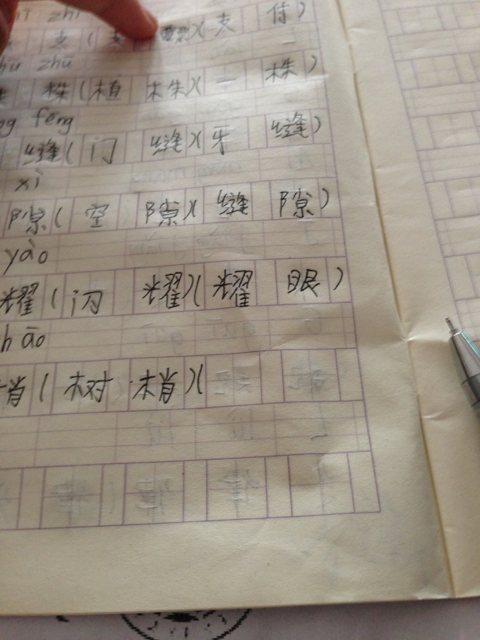 zhī
支(支 )(支 付)
zhū zhū
株 株(植 株)(一 株)
féng fèng
缝(门 缝)(牙 缝)
xì
隙(空 隙)(缝 隙)
yào
耀(闪 耀)(耀 眼)
shāo
梢(树 梢)(